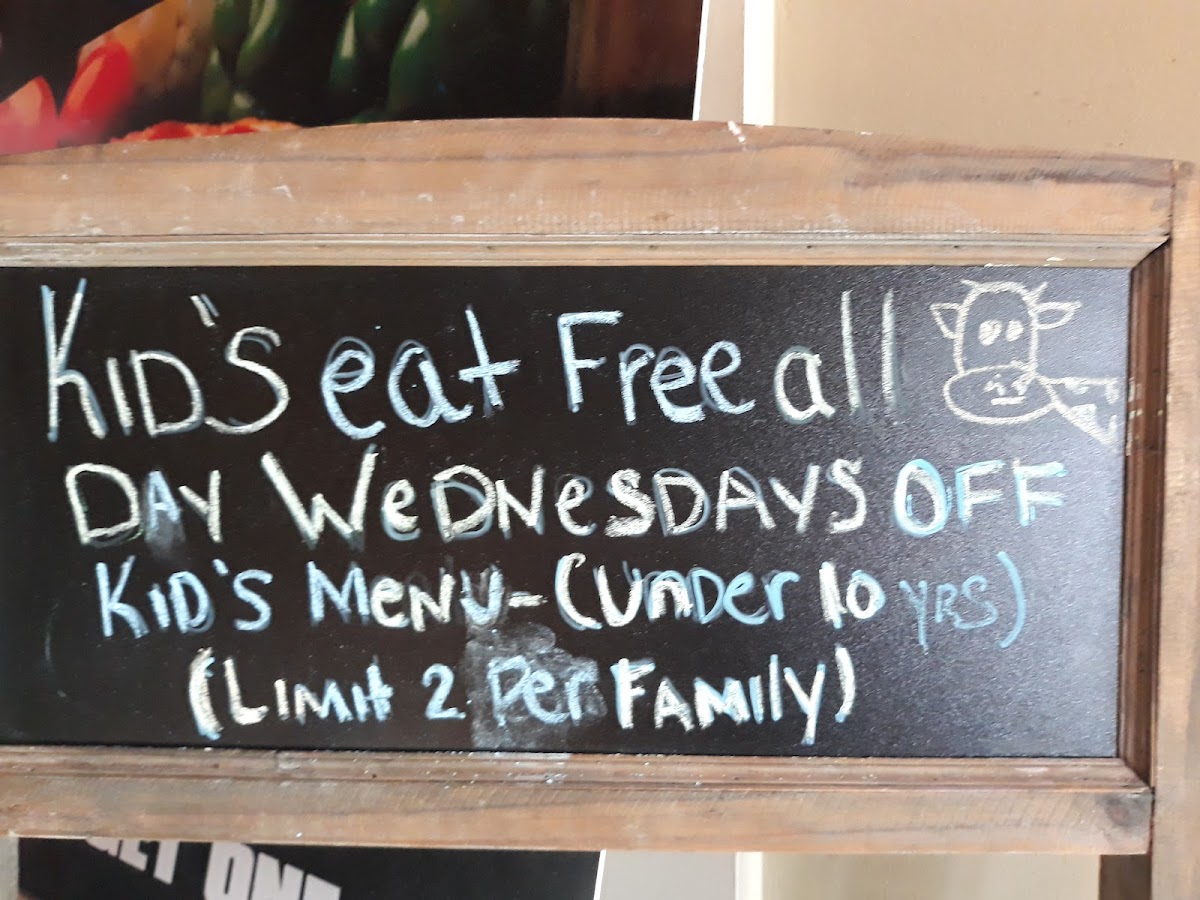 KID'S eat Free all
DAY WeDNesDAYS OFF
KiD'S MeNU - (UnDer 10 YRS)
(LIMIt 2 Per FAMIly)
GET ONE